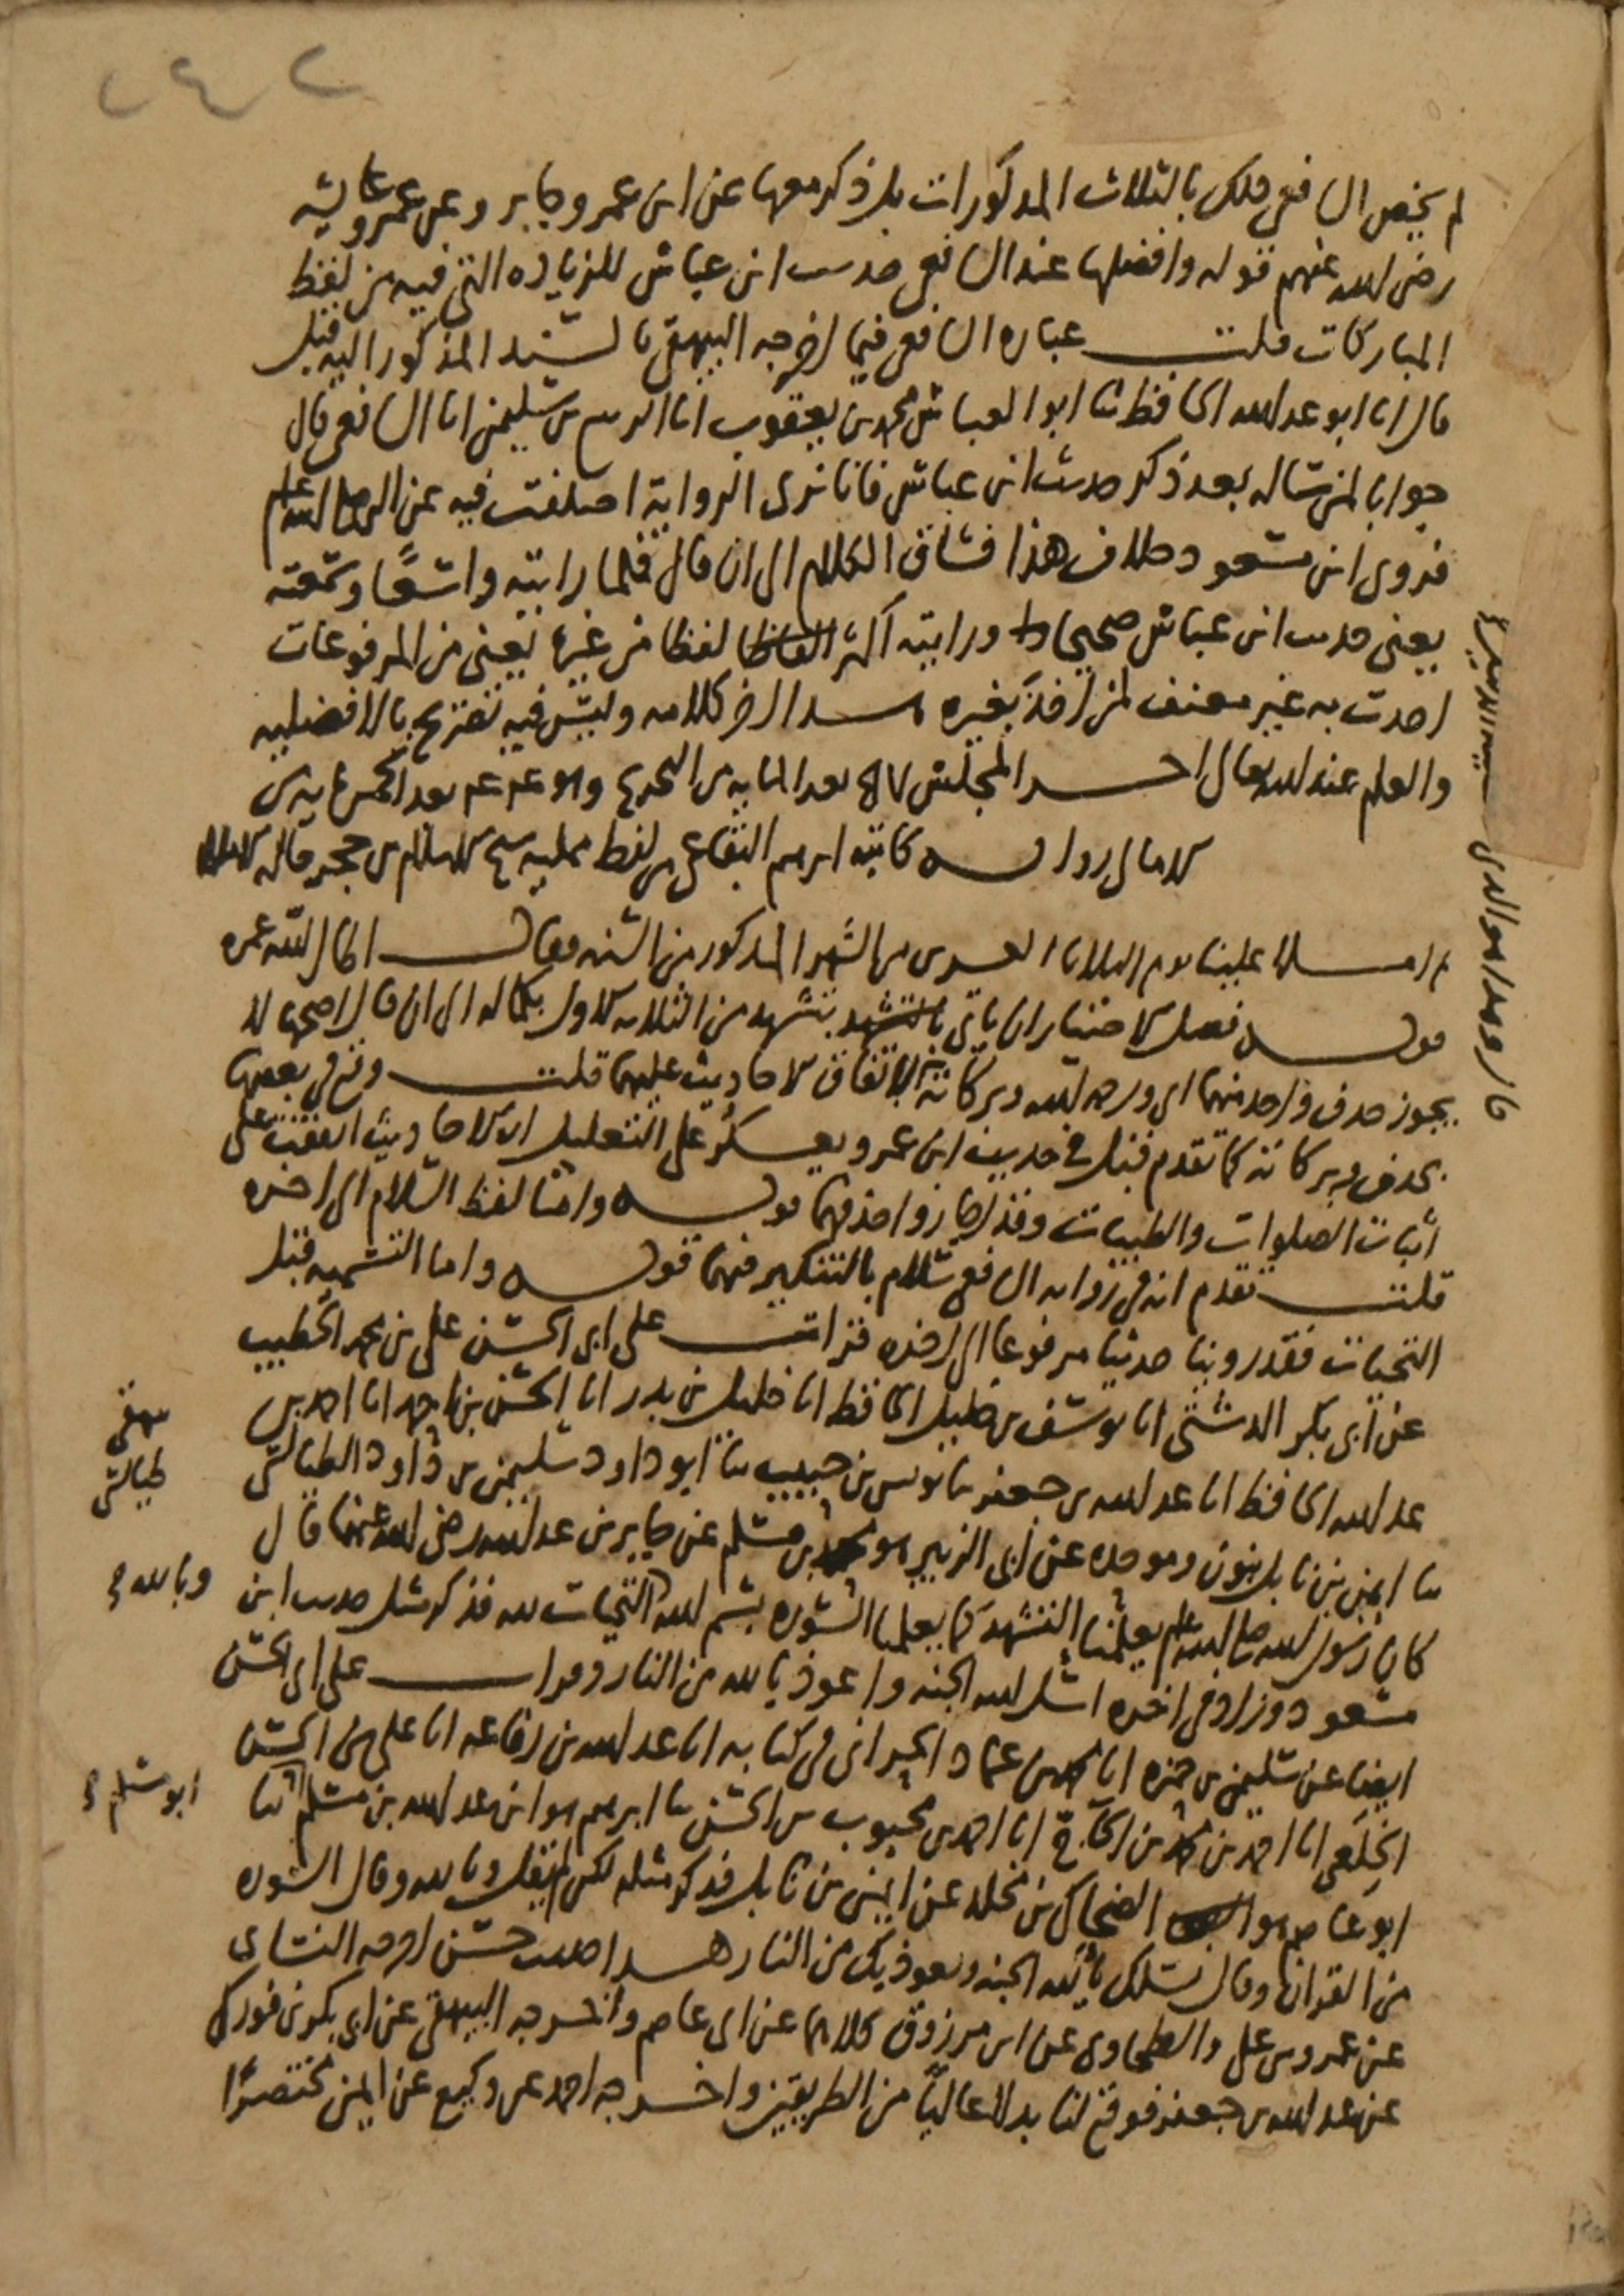 ٢٤٢
لم يخص الشافعي ذلك بالثلاث المذكورات بل ذكر معها عن ابن عمر وجابر وعن عمر وعائشة
رضي الله عنهم قوله وافضلها عند الشافعي حديث ابن عباس للزيادة التي فيه من لفظ
المباركات قلت عبارة الشافعي فيما اخرجه البيهقي بالسند المذكور اليه قبل
قال انا ابو عبد الله الحافظ ثنا ابو العباس محمد بن يعقوب انا الربيع بن سليمن انا الشافعي قال
جوابا لمن سأله بعد ذكر حديث ابن عباس فانا نرى الرواية اختلفت فيه عن النبي صلى الله عليه وسلم
فروى ابن مسعود خلاف هذا فساق الكلام الى ان قال فلما رايته واسعا وسمعته
يعني حديث ابن عباس صحيحا ورايته اكثر لفظا من غيره يعني من المرفوعات
اخذت به غير معنف لمن اخذ بغيره هذا اخر كلامه وليس فيه تصريح بالافضلية
والعلم عند الله تعالى اخر المجلس ٨٧ بعد المايه من التخريج وهو بعد الخمس مايه من
الامالي رواية كاتبه ابرهيم البقاعي من لفظ ممليه شيخ الاسلام بن حجر
ثم املا علينا يوم الثلاثا العشرين من الشهر المذكور من السنة فقال اطال الله عمره
قوله فصل الاختيار ان ياتي بتشهد من الثلاثة الاول بكماله الى ان قال اصحها لا
يجوز حذف واحد منهما اي ورحمة الله وبركاته لاتفاق الاحاديث عليهما قلت وقع في بعضها
بحذف وبركاته كما تقدم قبل في حديث ابن عمر ويعكر على التعليل ان الاحاديث اتفقت على
اثبات الصلوات والطيبات وقد اجازوا حذفهما قوله واما لفظ السلام الى اخره
قلت تقدم انه في رواية الشافعي سلام بالتنكير فيهما قوله واما التسمية قبل
التحيات فقد روينا حديثا مرفوعا الى اخره قرات على ابي الحسن علي بن محمد الخطيب
عن ابي بكر الدشتي انا يوسف بن خليل الحافظ انا خليل بن بدر انا الحسن بن احمد انا احمد بن
عبد الله الحافظ انا عبد الله بن جعفر ثنا يونس بن حبيب ثنا ابو داود سليمن بن داود الطيالسي
ثنا ايمن بن نابل بنون وموحده عن ابي الزبير هو محمد بن مسلم عن جابر بن عبد الله رضي الله عنهما قال
كان رسول الله صلى الله عليه وسلم يعلمنا التشهد كما يعلمنا السورة بسم الله التحيات لله فذكر مثل حديث ابن
مسعود وزاد في اخره اسئل الله الجنة واعوذ بالله من النار وقرات على ابي الحسن
ايضا عن سليمن بن حمزه انا محمد بن عماد الحراني في كتابه انا عبد الله بن رفاعه انا علي بن الحسن
الخلعي انا احمد بن محمد بن الحاج انا احمد بن محبوب بن الحسن ثنا ابرهيم هو ابن عبد الله بن مسلم ثنا
ابو عاصم هو الضحاك بن مخلد عن ايمن بن نابل فذكر مثله لكن لم يقل وبالله وقال السورة
من القران وقال نسلك يا الله الجنة ونعوذ بك من النار هذا حديث حسن اخرجه النسائي
عن عمرو بن علي والطحاوي عن ابن مرزوق كلاهما عن ابي عاصم واخرجه البيهقي عن ابي بكر بن فورك
عن عبد الله بن جعفر فوقع لنا بدلا عاليا من الطريقين واخرجه احمد عن وكيع عن ايمن مختصرا
بيهقي
طيالسي
وبالله
ابو مسلم